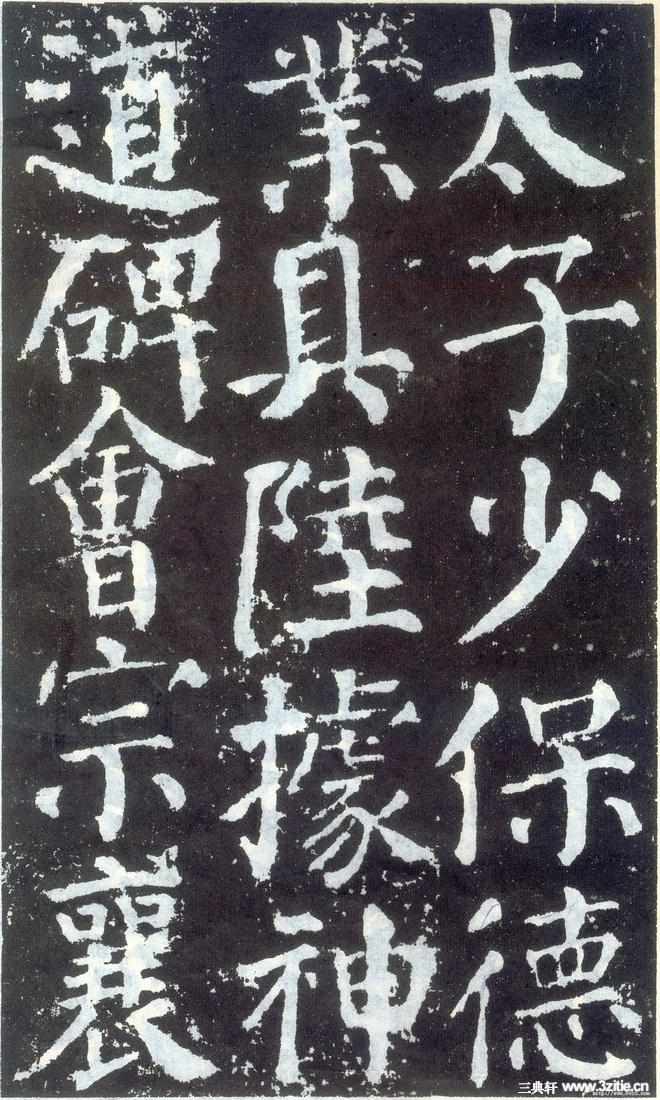 太子少保德
業具陸據神
道碑會宗襄
三典轩 www.3zitie.cn